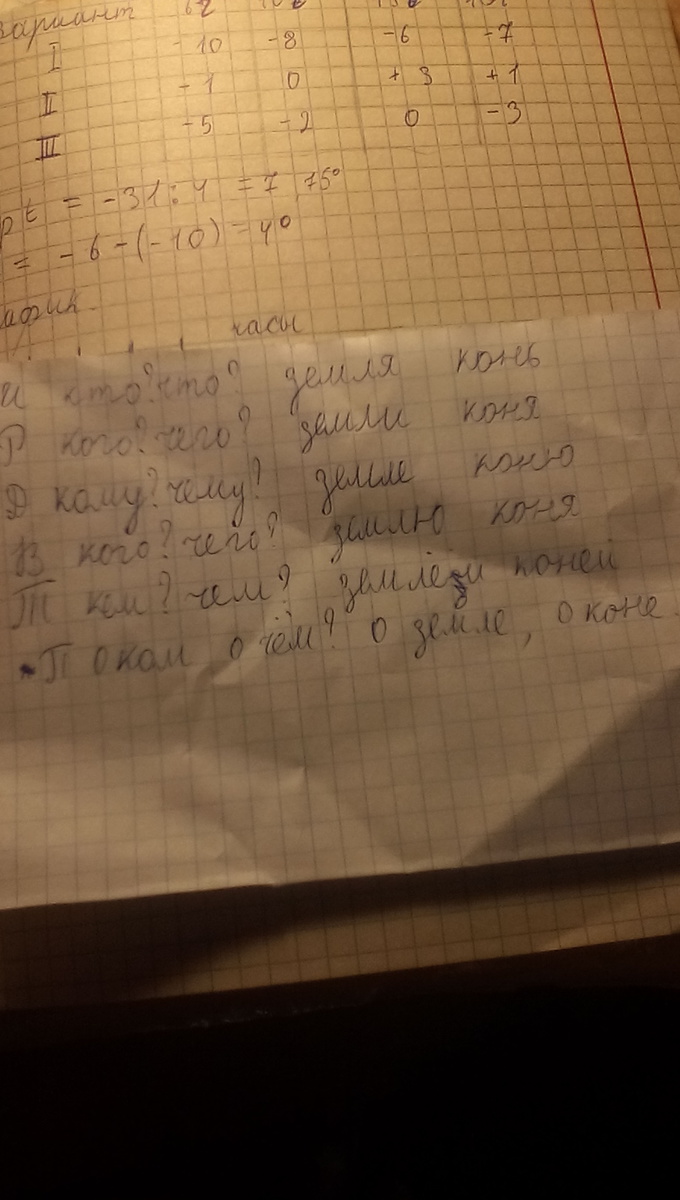 вариант
I -10 -8 -6 -7
II -1 0 +3 +1
III -5 -2 0 -3
рt = -31:4 = 7,75°
= -6-(-10) = 4°
афик.
часы
И кто? что? земля конь
Р кого? чего? земли коня
Д кому? чему? земле коню
В кого? чего? землю коня
Т кем? чем? землёй коней
П о ком о чём? о земле, о коне.